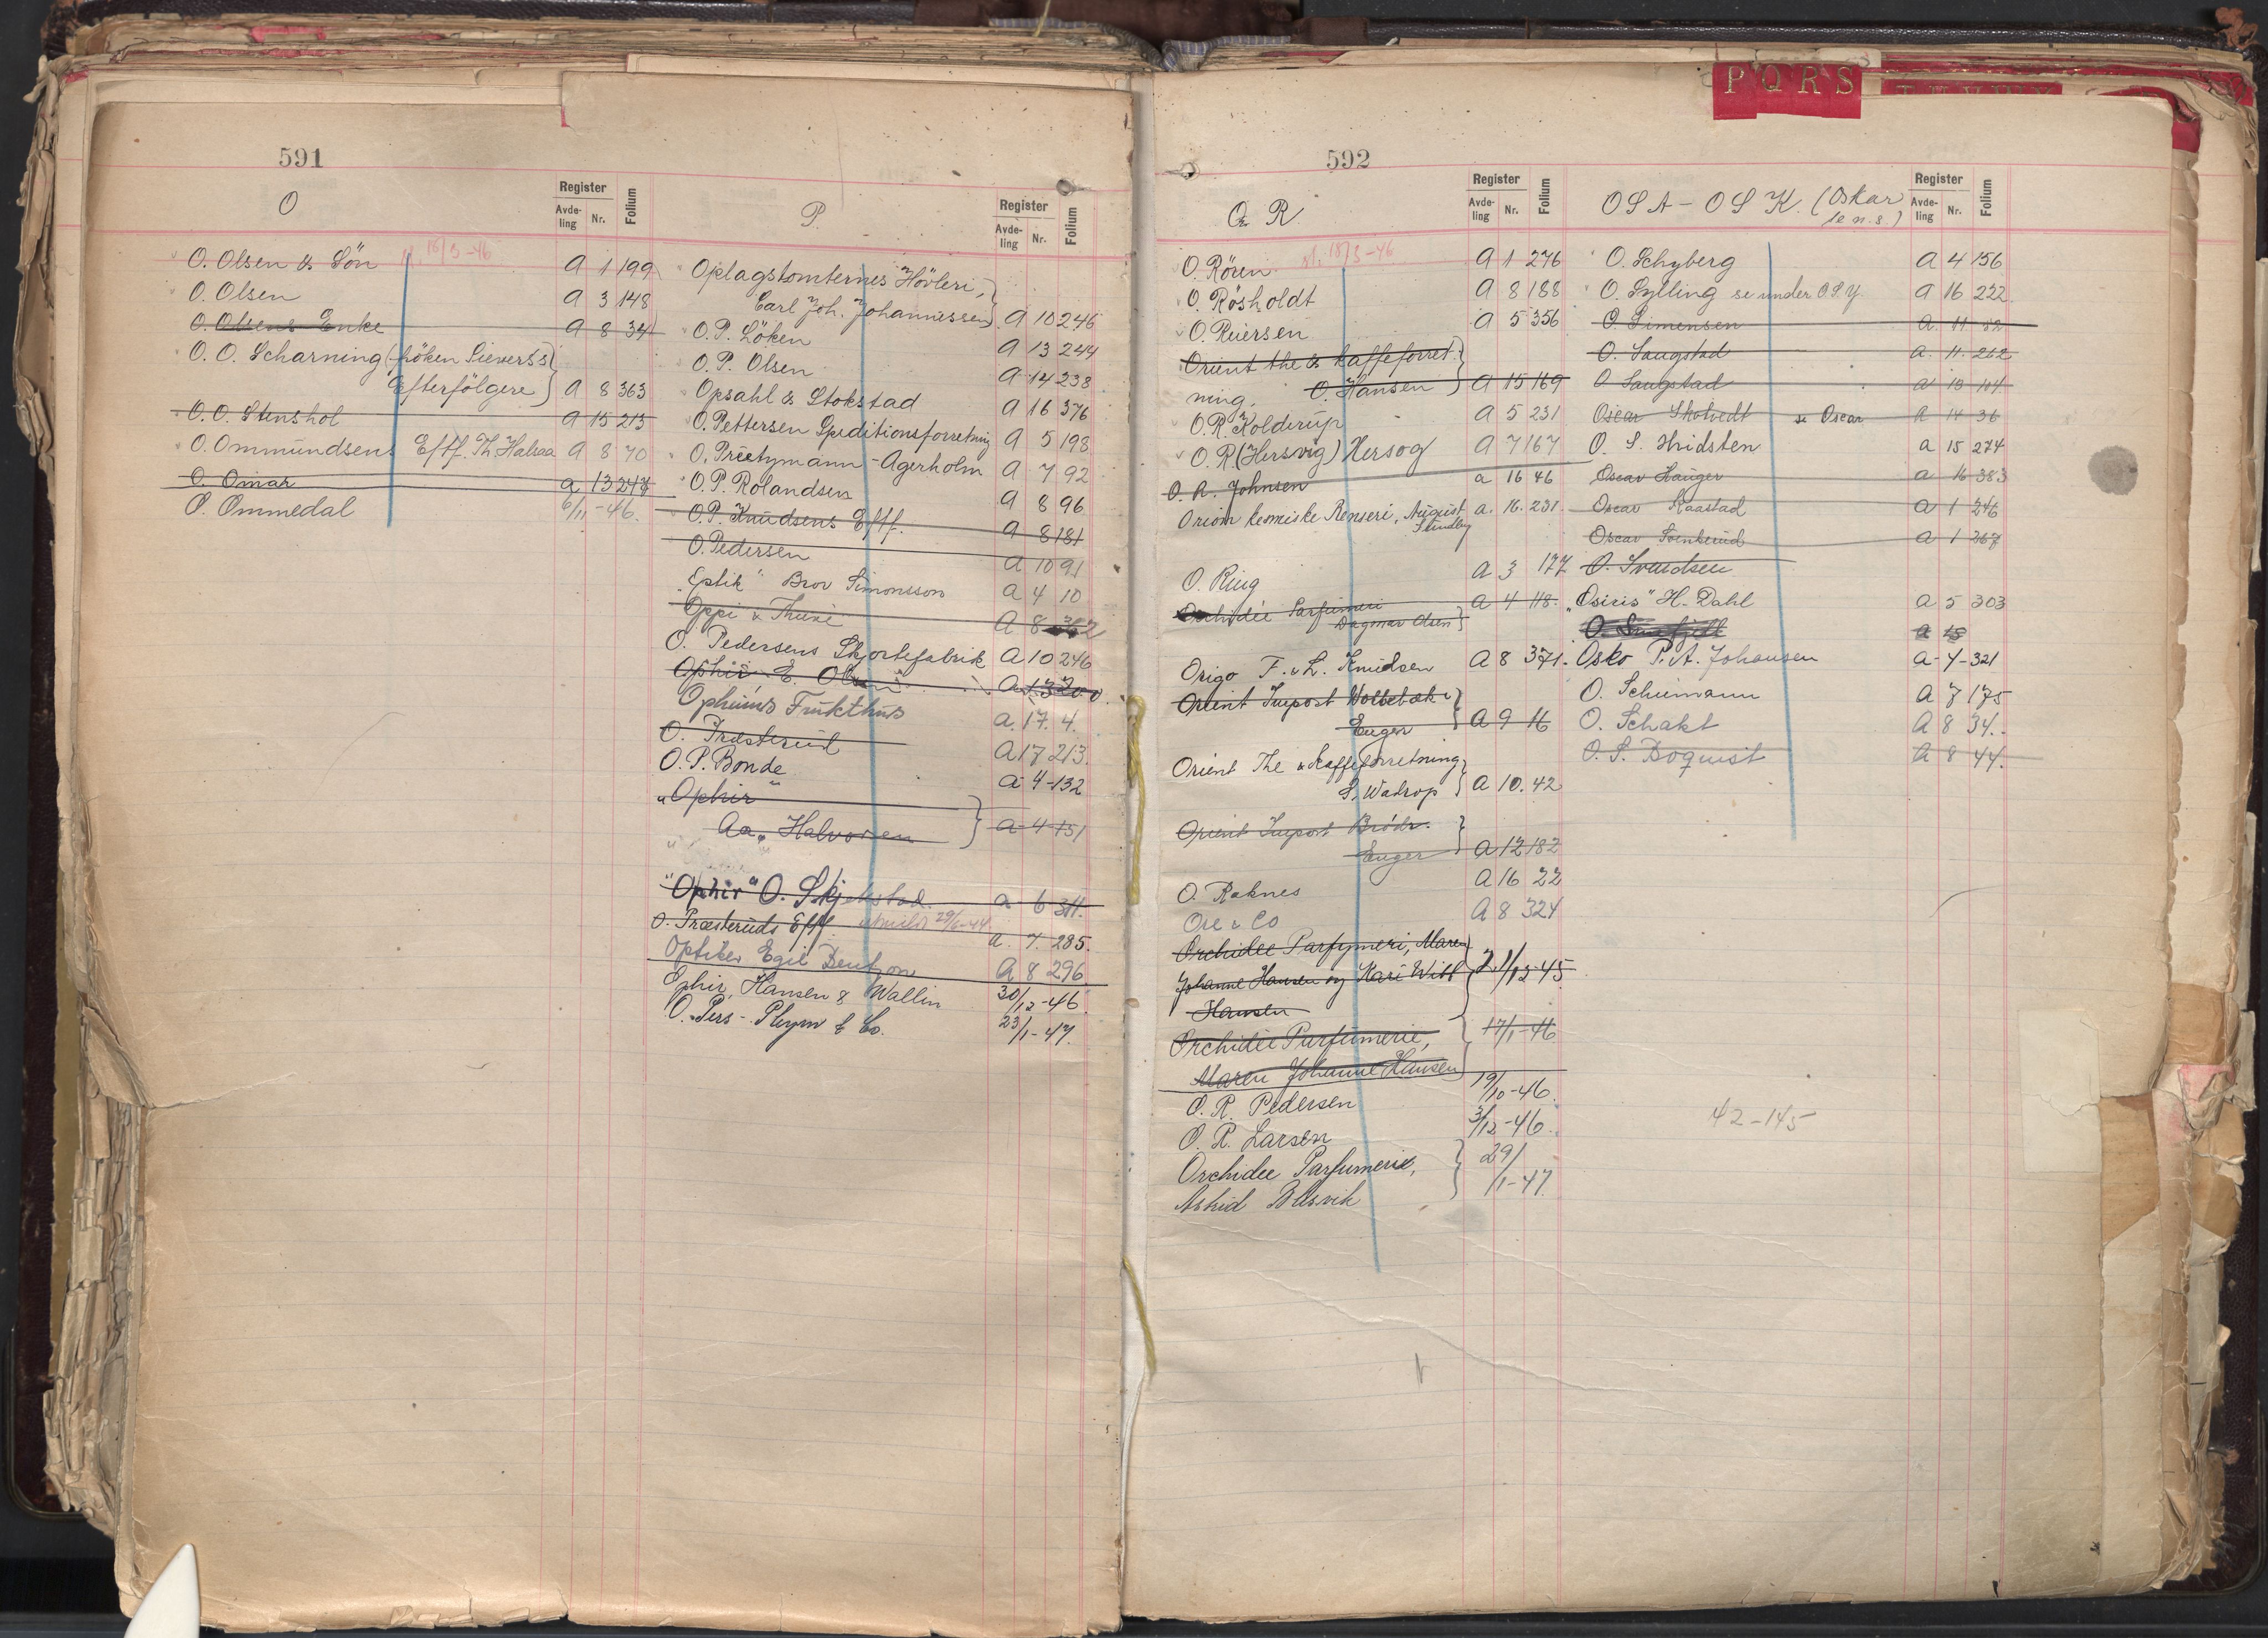 591
O
Register
Avde-
ling
Nr.
Folium
18/3-46
O. Olsen & Sön A 1 199
O. Olsen A 3 148
O. Olsens Enke A 8 34
O. O. Scharning (fröken Sieverss
Efterfölgere) A 8 363
O. O. Stenshol A 15 213
O. Ommundsens Eftf. Th. Halsaa A 8 70
O. Omar a 13 247
O. Ommedal 6/11-46.
P.
Register
Avde-
ling
Nr.
Folium
Oplagstomternes Hövleri,
Carl Joh. Johannessen A 10 246
O. P. Löken A 13 244
O. P. Olsen A 14 238
Opsahl & Stokstad A 16 376
O. Pettersen Speditionsforretning A 5 198
O. Preetzmann-Agerholm A 7 92
O. P. Rolandsen A 8 96
O. P. Knudsens Eftf. A 8 181
O. Pedersen A 10 91
"Eptik" Brov Simonsson A 4 10
Oppi & Thuve A 8 362
O. Pedersens Skjortefabrik A 10 246
Ophir E. Olsen A 13 200
Opheims Frukthus a. 17. 4.
O. Præsterud A 17 213.
O. P. Bonde a 4-132
"Ophir"
Aa. Halvorsen a 4 151
"Ophir" O. Skjelstad a 6 311.
O. Præsteruds Eftf. 29/6-44 a. 7. 285.
Optiker Egil Bentzon A 8 296
Ophir, Hansen & Wallin 30/12-46.
O. Pers-Plym & Co. 23/1-47.
592
O R
Register
Avde-
ling
Nr.
Folium
18/3-46
O. Rören A 1 276
O. Rösholdt A 8 188
O. Reiersen A 5 356
Orient the & kaffeforret-
ning, O. Hansen A 15 169
O. R. Kolderup A 5 231
O. R (Hersvig) Hersog A 7 167
O. R. Johnsen a 16 46
Orion kemiske Renseri, August a. 16. 231
Sundby
O. Ring A 3 177
Orchidée Parfumeri
Dagmar Olsen A 4 118.
Origo F. & L. Knudsen A 8 371.
Orient Import Wolbetæk &
Enger A 9 16
Orient The & Kaffeforretning
S. Wadrop A 10. 42
Orient Import Brödr.
Enger A 12 182
O. Raknes A 16 22
Ore & Co A 8 324
Orchidee Parfymeri, Maren
Johanne Hansen og Kari Witt 21/12-45
Hansen
Orchidée Parfumerie, 17/1-46
Maren Johanne Hansen
O. R. Pedersen 19/10-46.
O. R. Larsen 3/12-46.
Orchidee Parfumerie, 29/
Astrid Blåsvik /1-47.
O S A - O S K. (Oskar
le n.s.)
Register
Avde-
ling
Nr.
Folium
O. Schyberg A 4 156
O. Sylling se under O.S.Y. A 16 222
O. Simensen A 11 52
O. Saugstad a. 11. 262
O Saugstad a 13 104
Oscar Skotvedt se Oscar A 14 36
O. S. Hvidsten a 15 274
Oscar Hauger a 16 383
Oscar Kaastad A 1 246
Oscar Svenkerud A 1 367
O. Svendsen
"Osiris" H. Dahl A 5 303
Osko P. A. Johansen a-4-321
O. Schumann A 7 175
O. Schakt A 8 34.
O. S. Boquist A 8 44.
42-145
P Q R S